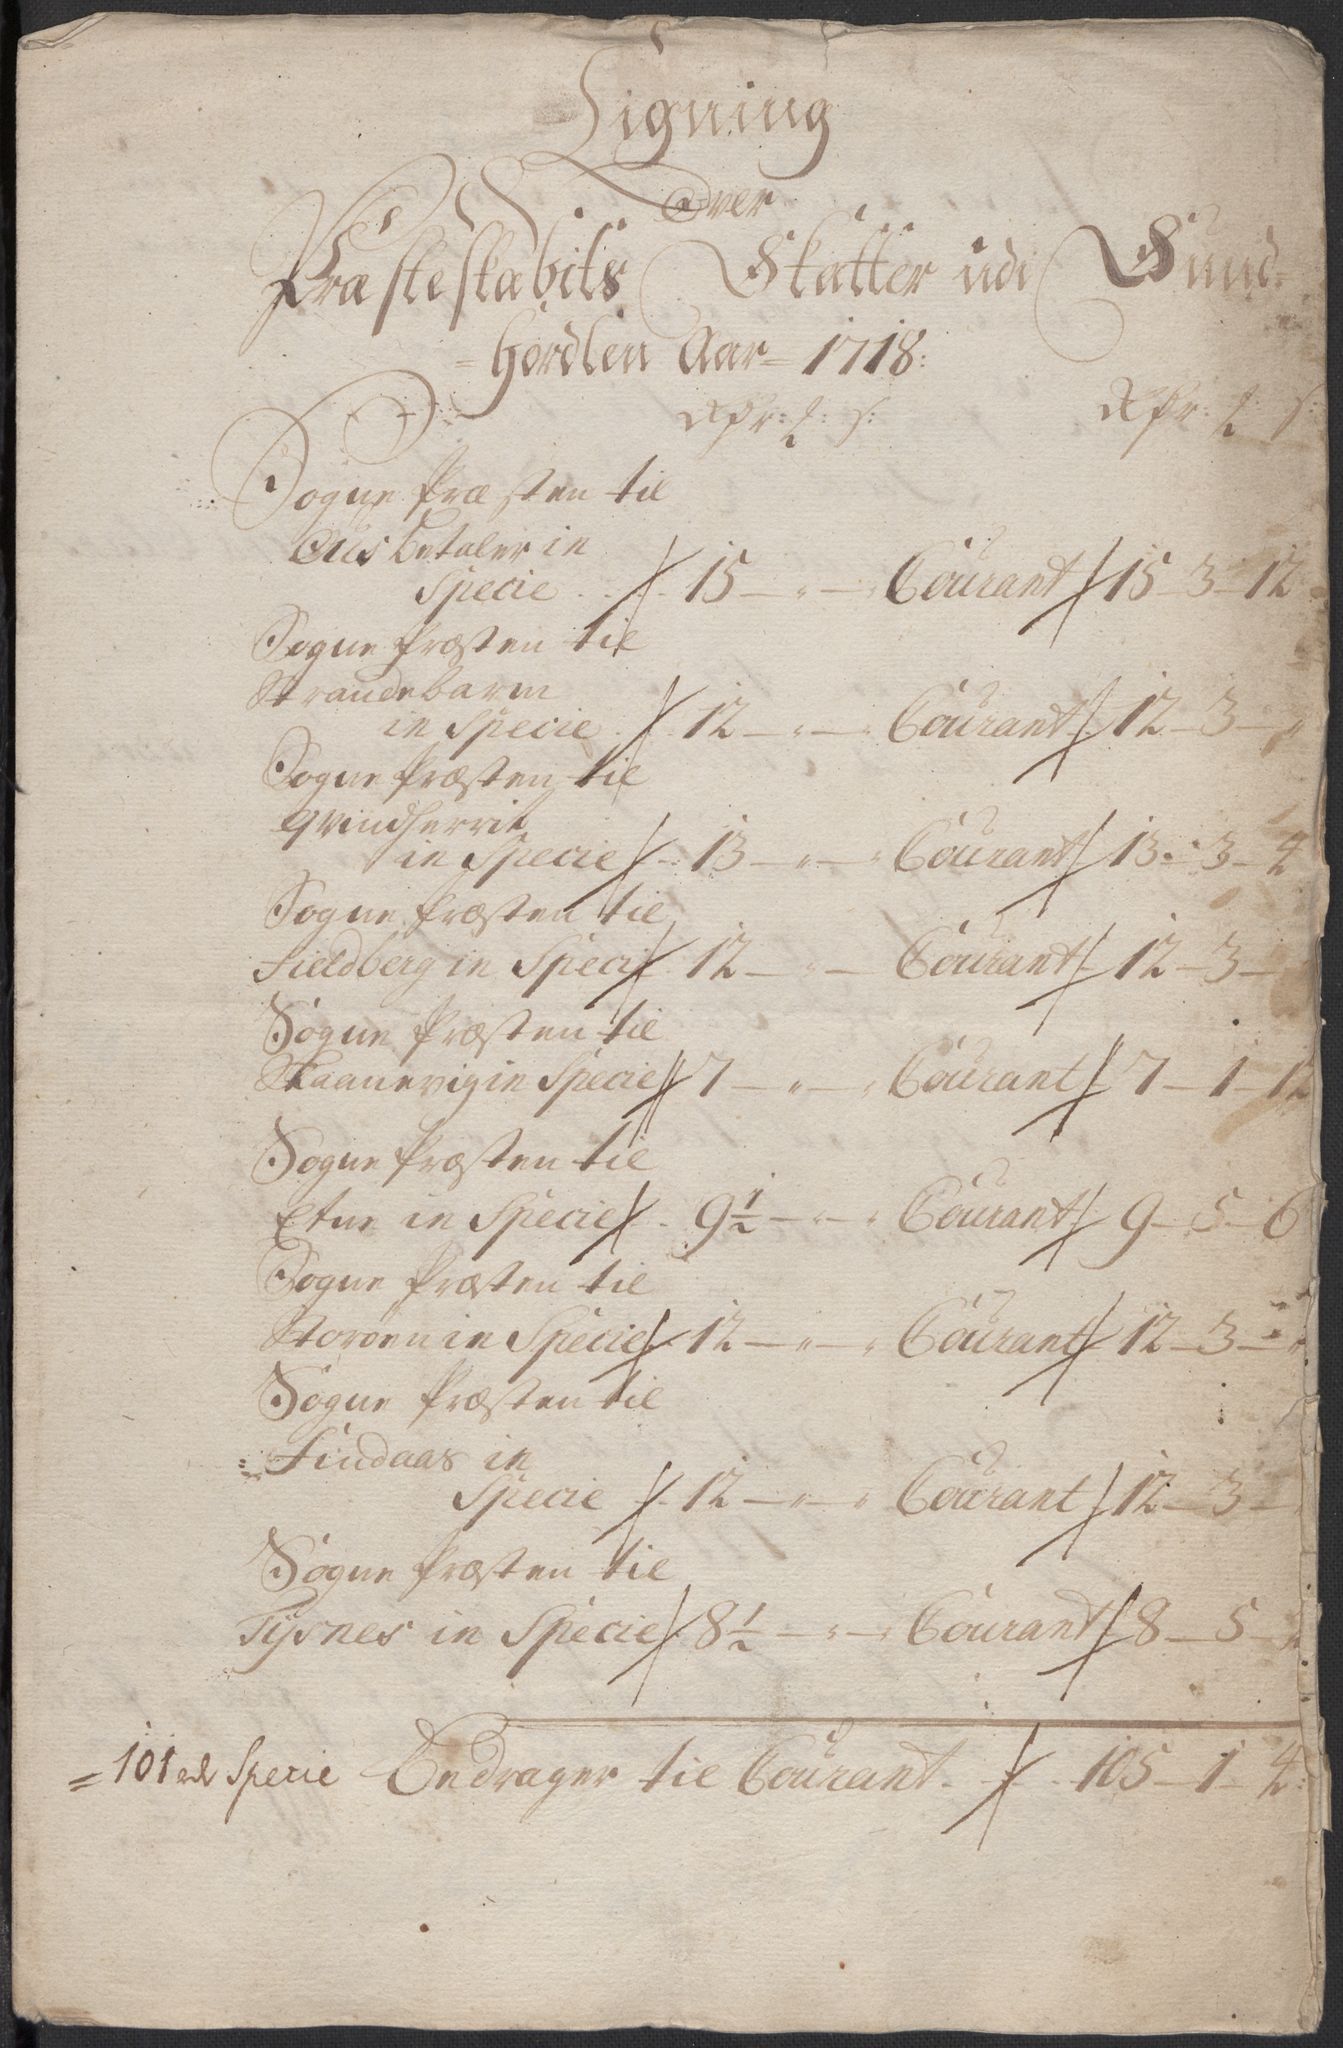 Ligning
Over
Præsteskabits Skatter udi Sund-
=hordlen Aar= 1718:
Rdr: ℔: s: Rdr: ℔: s:
Sogne Præsten til
Ous betaler in
Specie . . . 15 — „ — „ Courant 15 — 3 — 12
Sogne Præsten til
Strandebarm
in Specie . 12 — „ — Courant 12 — 3 — „
Sogne Præsten til
Qvindherrit
in Specie . 13 — „ — „ Courant 13 — 3 — 4
Sogne Præsten til
Fieldberg in Specie 12 — „ — Courant 12 — 3 —
Sogne Præsten til
Skaanevig in Specie 7 — „ — „ Courant 7 — 1 — 12
Sogne Præsten til
Etne in Specie . 9½ — „ — „ Courant 9 — 5 — 6
Sogne Præsten til
Storøen in Specie 12 — „ — „ Courant 12 — 3 — „
Sogne Præsten til
Findaas in
Specie 12 — „ — „ Courant 12 — 3 —
Sogne Præsten til
Tysnes in Specie 8½ — „ — „ Courant 8 — 5 —
= 101 rdr Specie Bedrager til Courant . . 105 — 1 — 4: